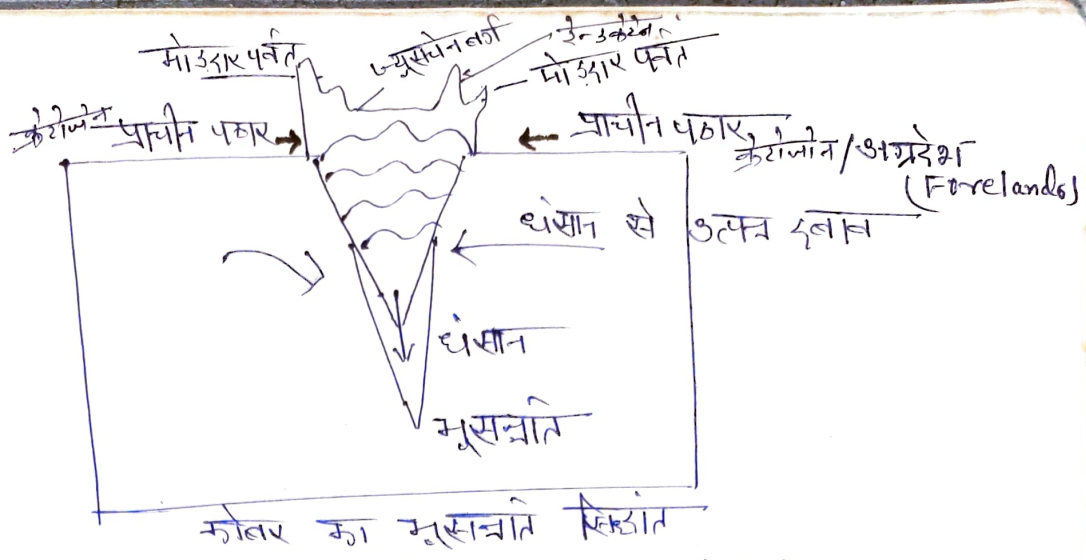 मोड़दार पर्वत
ज्यूसचेनबर्ग
रेन्डकेटेन
मोड़दार पर्वत
क्रेटोजोन प्राचीन पठार
प्राचीन पठार
क्रेटोजोन/अग्रदेश
(Forelands)
धंसान से उत्पन्न दबाव
धंसान
भूसन्नति
कोबर का भूसन्नति सिद्धांत